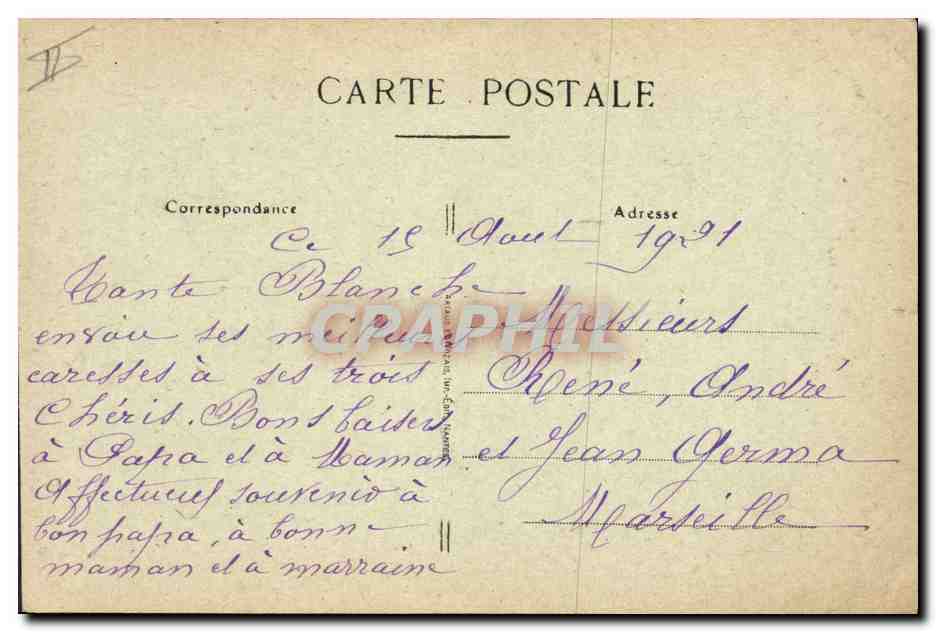 CARTE POSTALE
Correspondance
Adresse
Ce 15 Aout 1921
Tante Blanche
envoie ses meilleures
caresses à ses trois
Chéris. Bons baisers
à Papa et à Maman
Affectueux souvenir à
bon papa, à bonne
maman et à marraine
Messieurs
René, André
et Jean Germa
Marseille
ARTAUD
NANTES
CPAPHIL